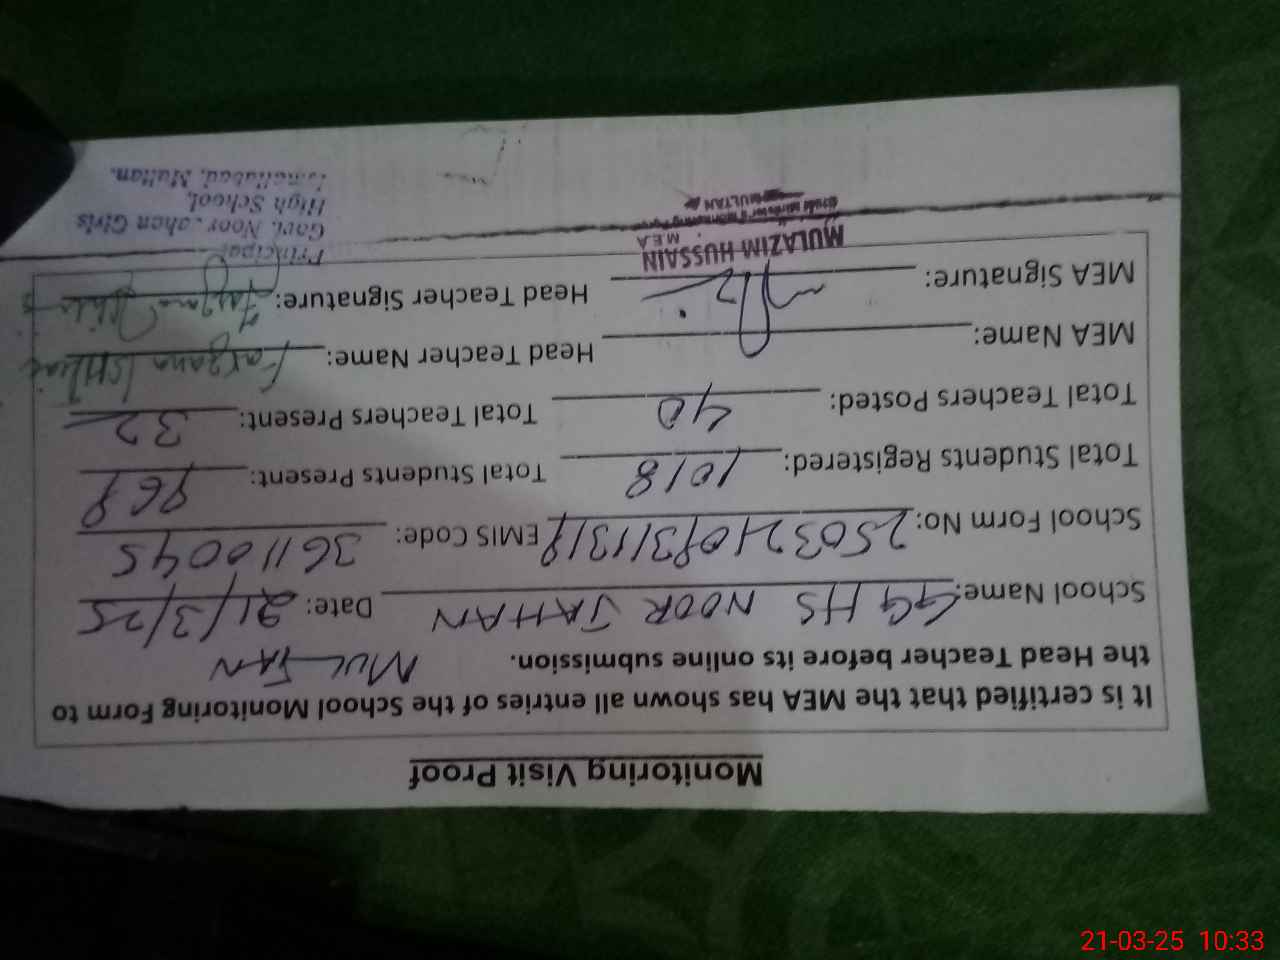 Monitoring Visit Proof
It is certified that the MEA has shown all entries of the School Monitoring Form to
the Head Teacher before its online submission. MULTAN
School Name: GGHS NOOR JAHAN Date: 21/3/25
School Form No: EMIS Code: 36110045
Total Students Registered: 1018 Total Students Present: 969
Total Teachers Posted: 40 Total Teachers Present: 32
MEA Name: Head Teacher Name: Farzana
MEA Signature: Head Teacher Signature:
MULAZIM HUSSAIN
M.E.A
MULTAN
Principal
Govt. Noor Jahan Girls
High School,
Ismailabad, Multan.
21-03-25 10:33